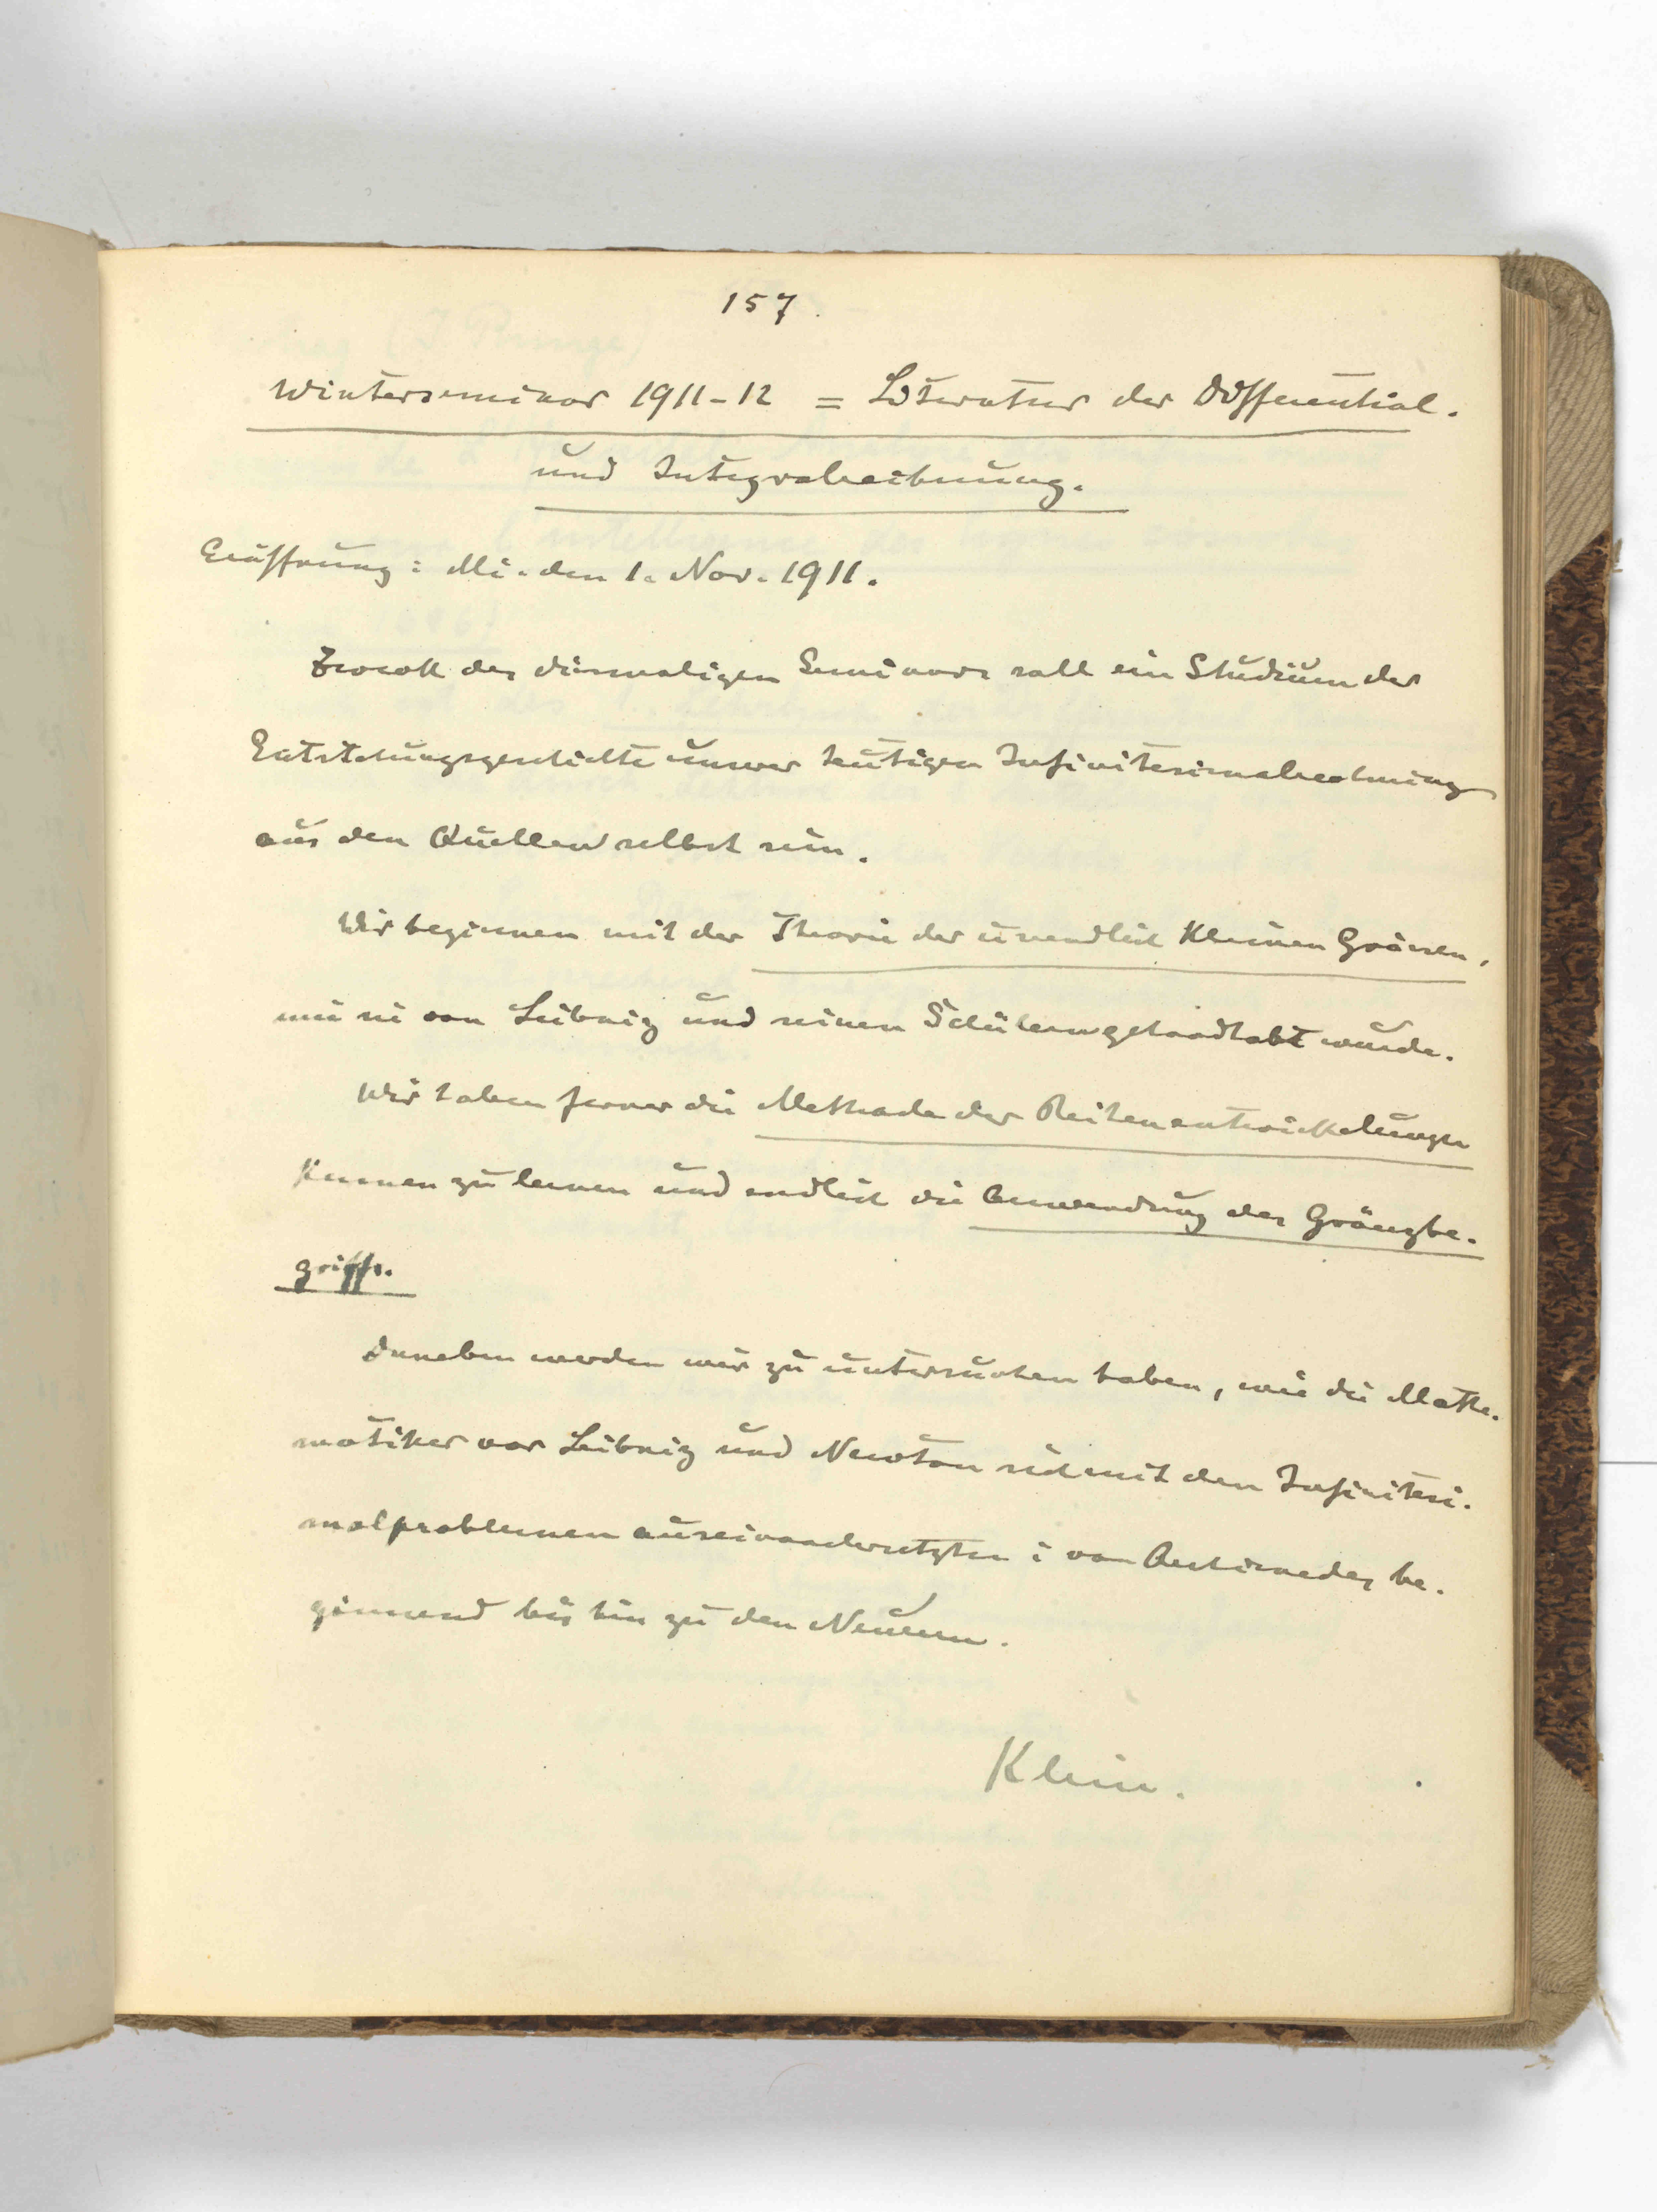 157.
Winterseminar 1911-12 = Literatur der Differential-
und Integralrechnung.
Eröffnung: Mi. den 1. Nov. 1911.
Zweck des diesmaligen Seminars soll ein Studium der
Entstehungsgeschichte unserer heutigen Infinitesimalrechnung
aus den Quellen selbst sein.
Wir beginnen mit der Theorie der unendlich kleinen Grössen,
wie sie von Leibniz und seinen Schülern gehandhabt wurde.
Wir haben ferner die Methode der Reihenentwickelungen
kennen zu lernen und endlich die Anwendung des Gränzbe-
griffs.
Daneben werden wir zu untersuchen haben, wie die Mathe-
matiker vor Leibniz und Newton sich mit den Infinitesi-
malproblemen auseinandersetzten: von Archimedes be-
ginnend bis hin zu den Neueren.
Klein.